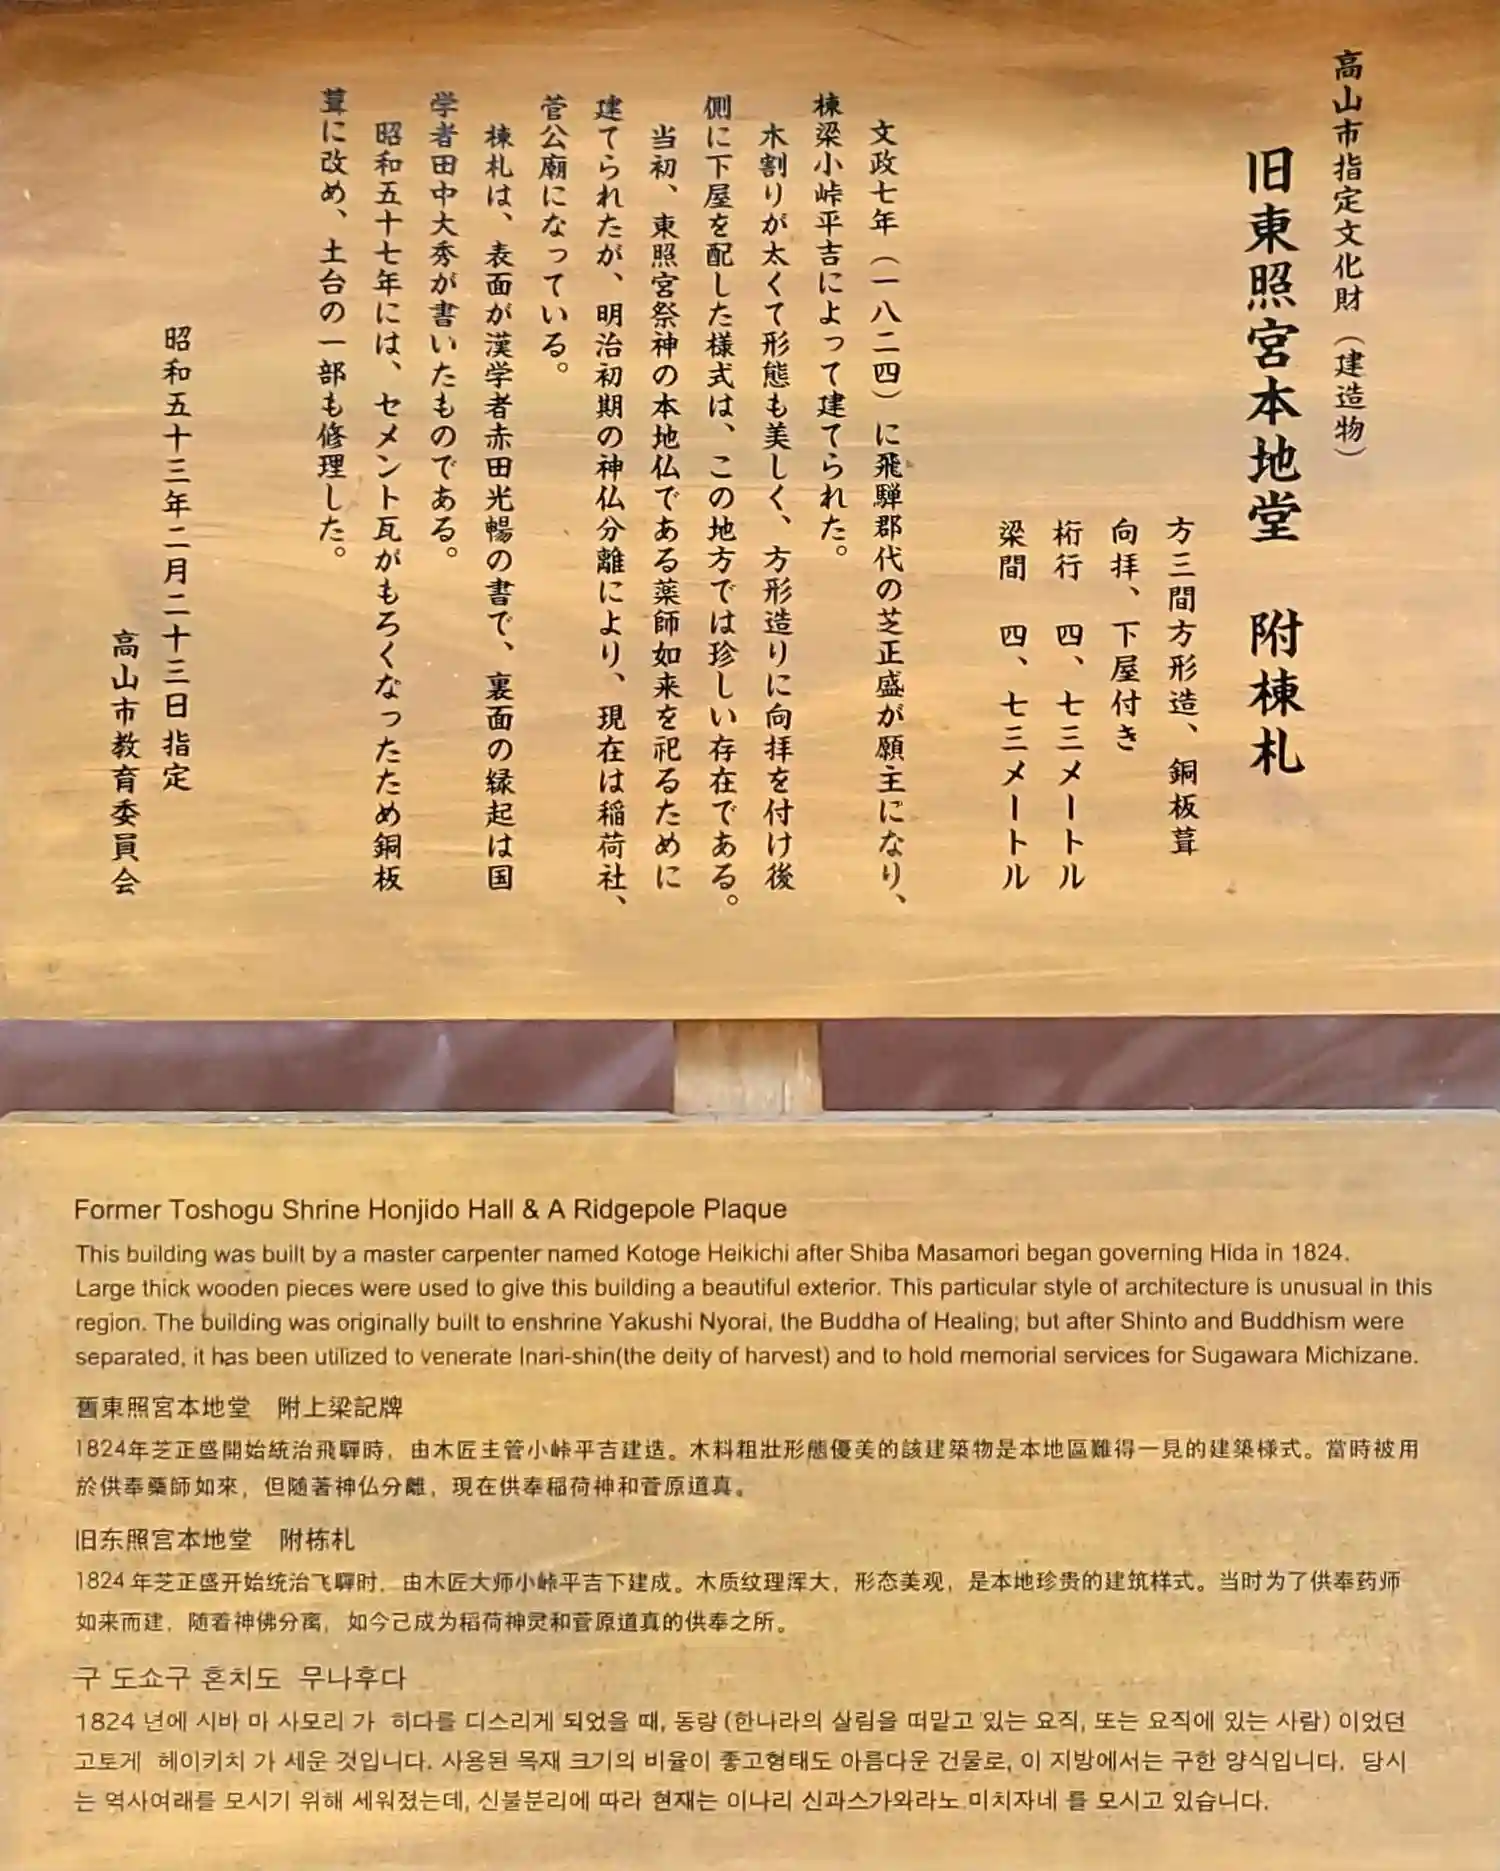 高山市指定文化財（建造物）
旧東照宮本地堂　附棟札
方三間方形造、銅板葺
向拝、下屋付き
桁行　四、七三メートル
梁間　四、七三メートル
文政七年（一八二四）に飛騨郡代の芝正盛が願主になり、
棟梁小峠平吉によって建てられた。
木割りが太くて形態も美しく、方形造りに向拝を付け後
側に下屋を配した様式は、この地方では珍しい存在である。
当初、東照宮祭神の本地仏である薬師如来を祀るために
建てられたが、明治初期の神仏分離により、現在は稲荷社、
菅公廟になっている。
棟札は、表面が漢学者赤田光暢の書で、裏面の縁起は国
学者田中大秀が書いたものである。
昭和五十七年には、セメント瓦がもろくなったため銅板
葺に改め、土台の一部も修理した。
昭和五十三年二月二十三日指定
高山市教育委員会
Former Toshogu Shrine Honjido Hall & A Ridgepole Plaque
This building was built by a master carpenter named Kotoge Heikichi after Shiba Masamori began governing Hida in 1824.
Large thick wooden pieces were used to give this building a beautiful exterior. This particular style of architecture is unusual in this
region. The building was originally built to enshrine Yakushi Nyorai, the Buddha of Healing; but after Shinto and Buddhism were
separated, it has been utilized to venerate Inari-shin(the deity of harvest) and to hold memorial services for Sugawara Michizane.
舊東照宮本地堂　附上梁記牌
1824年芝正盛開始統治飛驒時，由木匠主管小峠平吉建造。木料粗壯形態優美的該建築物是本地區難得一見的建築樣式。當時被用
於供奉藥師如來，但随著神仏分離，現在供奉稲荷神和菅原道真。
旧东照宫本地堂　附栋札
1824年芝正盛开始统治飞驒时，由木匠大师小峠平吉下建成。木质纹理浑大，形态美观，是本地珍贵的建筑样式。当时为了供奉药师
如来而建，随着神佛分离，如今己成为稻荷神灵和菅原道真的供奉之所。
구 도쇼구 혼치도 무나후다
1824 년에 시바 마 사모리 가 히다를 디스리게 되었을 때, 동량 (한나라의 살림을 떠맡고 있는 요직, 또는 요직에 있는 사람) 이었던
고토게 헤이키치 가 세운 것입니다. 사용된 목재 크기의 비율이 좋고형태도 아름다운 건물로, 이 지방에서는 구한 양식입니다. 당시
는 역사여래를 모시기 위해 세워졌는데, 신불분리에 따라 현재는 이나리 신과스가와라노 미치자네 를 모시고 있습니다.